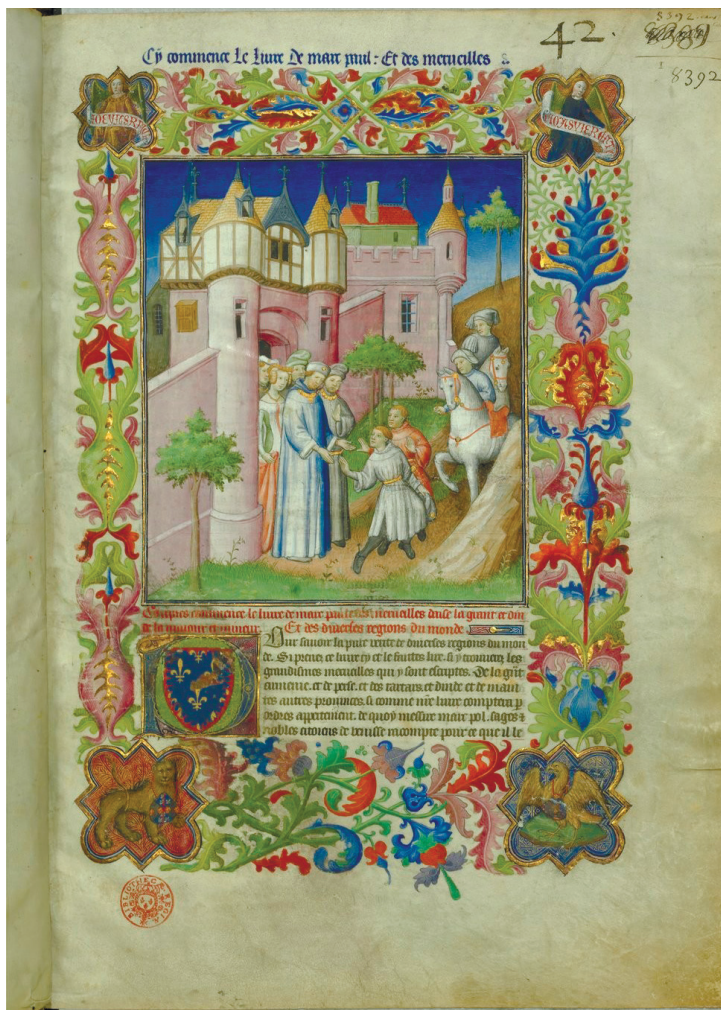 42.
8392
Cy commence Le liure De marc paul : Et des merueilles
Cy apres commence le liure de marc paul des merueilles daise la grant et din
de la maiour et mineur. Et des diuerses regions du monde.
Pour sauoir la pure verite de diuerses regions du mon
de. Si prenez ce liure cy et le faites lire. si y trouuerez les
grandismes merueilles qui y sont escriptes. De la grant
armenie. et de perse. et des tartars. et dinde et de maint
tes autres prouinces. si comme nre liure comptera p
ordres appertement. de quoy messire marc pol. sages
nobles citoiens de venisse racompte pour ce que il le
BIBLIOTHECAE REGIAE